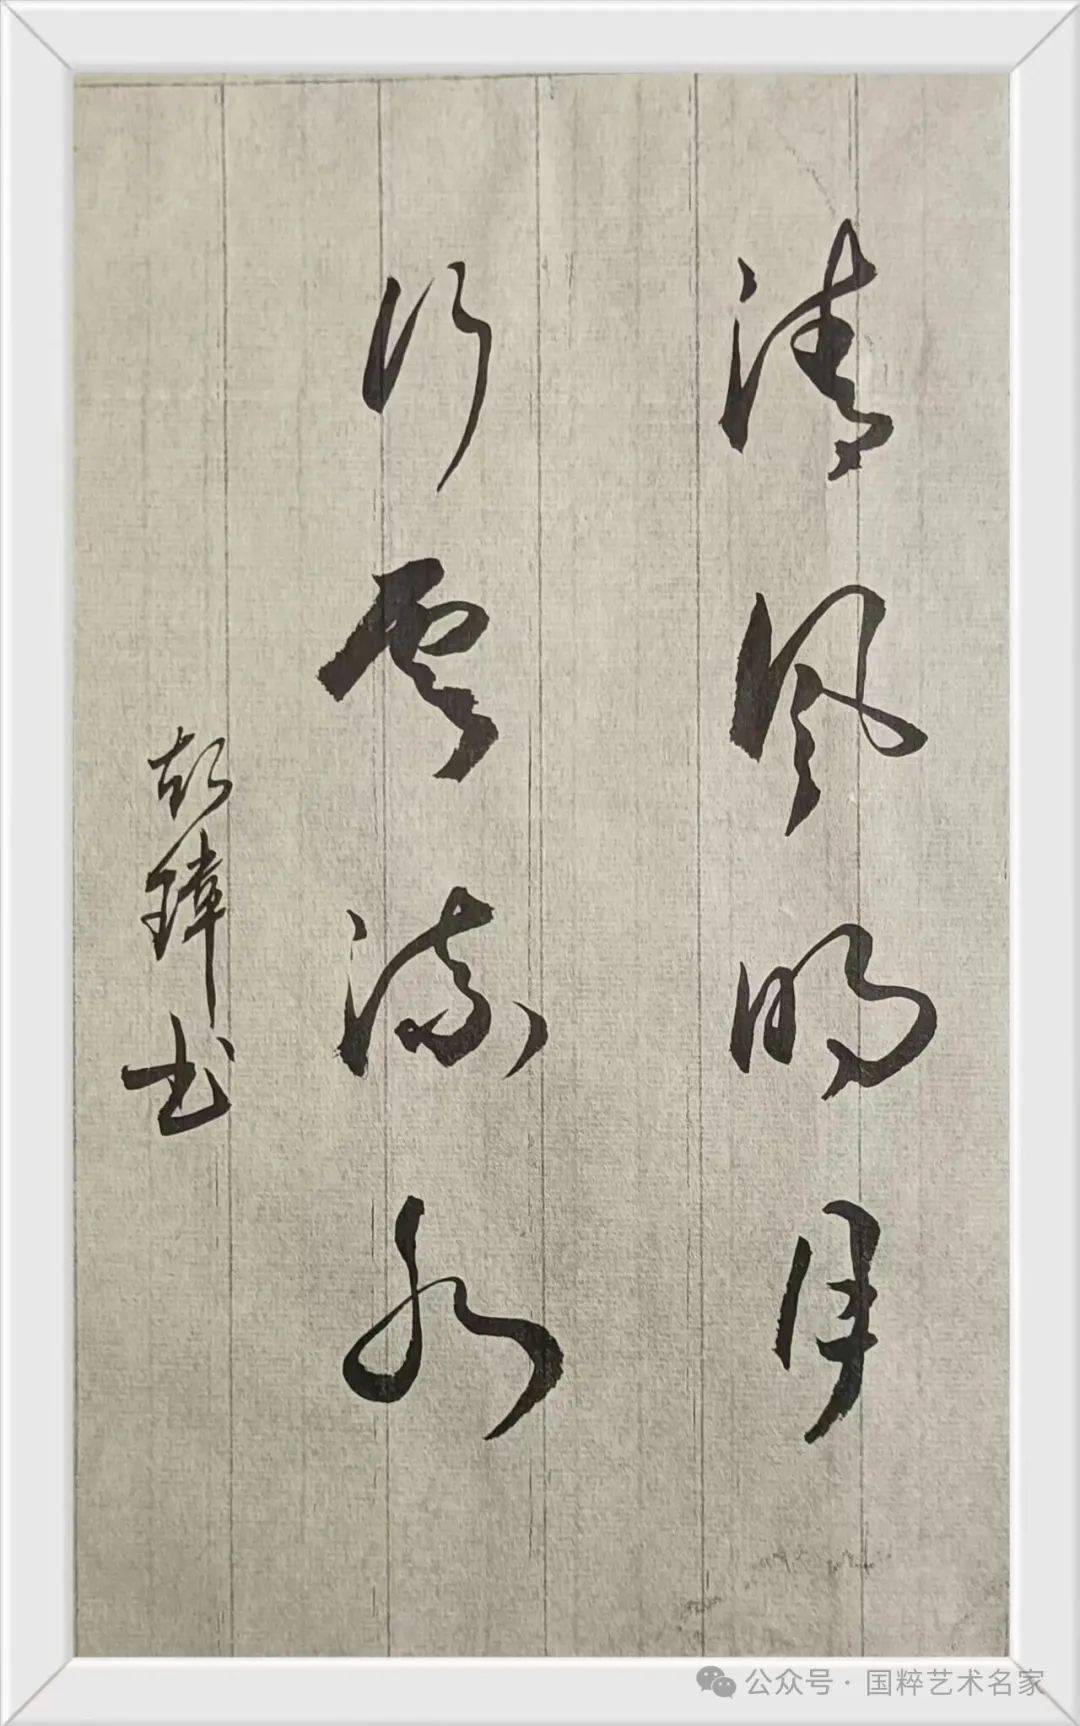 清风明月
行云流水
彭璋书
公众号·国粹艺术名家